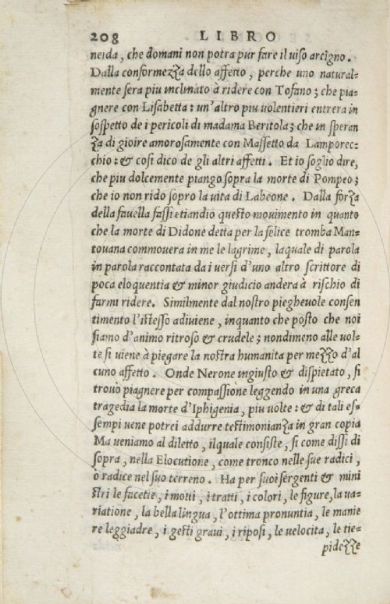 208 LIBRO
neida, che domani non potra pur fare il uiso arcigno.
Dalla conformezza dello affetto, perche uno natural-
mente sera piu inclinato à ridere con Tofano; che pia-
gnere con Lisabetta: un'altro piu uolentieri entrera in
sospetto de i pericoli di madama Beritola; che in speran
za di gioire amorosamente con Massetto da Lamporec-
chio: & cosi dico de gli altri affetti. Et io soglio dire,
che piu dolcemente piango sopra la morte di Pompeo;
che io non rido sopro la uita di Labeone. Dalla forza
della fauella fassi etiandio questo mouimento in quanto
che la morte di Didone detta per la felice tromba Man-
touana commouera in me le lagrime, laquale di parola
in parola raccontata da i uersi d'uno altro scrittore di
poca eloquentia & minor giudicio andera à rischio di
farmi ridere. Similmente dal nostro piegheuole consen
timento l'istesso adiuiene, inquanto che posto che noi
siamo d'animo ritroso & crudele; nondimeno alle uol-
te si uiene à piegare la nostra humanita per mezzo d'al
cuno affetto. Onde Nerone ingiusto & dispietato, si
trouò piagnere per compassione leggendo in una greca
tragedia la morte d'Iphigenia, piu uolte: & di tali es-
sempi uene potrei addurre testimonianza in gran copia
Ma ueniamo al diletto, ilquale consiste, si come dissi di
sopra, nella Elocutione, come tronco nelle sue radici,
ò radice nel suo terreno. Ha per suoi sergenti & mini
stri le facetie, i motti, i tratti, i colori, le figure, la ua-
riatione, la bella lingua, l'ottima pronuntia, le manie
re leggiadre, i gesti graui, i riposi, le uelocita, le tie-
pidezze